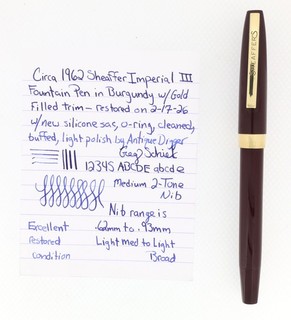 Circa 1962 Sheaffer Imperial III
Fountain Pen in Burgundy w/Gold
Filled trim - restored on 2-17-26
w/new silicone sac, o-ring, cleaned,
buffed, light polish by Antique Digger
Greg Schiek
12345 ABCDE abcde
Medium 2-Tone
Nib
Nib range is
Excellent .62mm to .93mm
restored Light med to Light
condition Broad
SHEAFFER'S